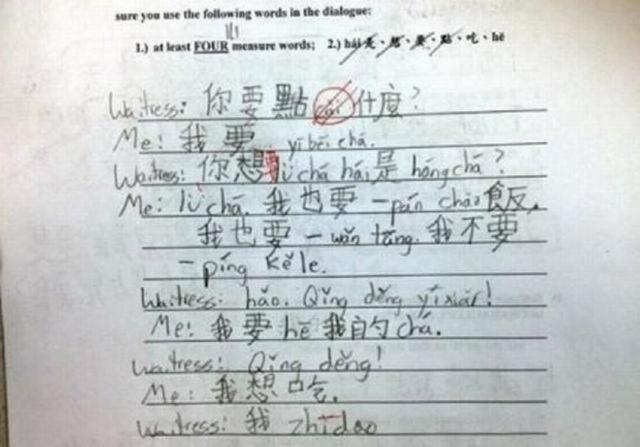 sure you use the following words in the dialogue:
1.) at least FOUR measure words; 2.) hái 是、想、要、點、吃、hē
Waitress: 你要點 cài 什麼?
Me: 我要 yì bēi chá.
Waitress: 你想要 lǜ chá hái 是 hóngchá?
Me: lǜ chá. 我也要一pán chǎo飯,
我也要一wǎn tāng. 我不要
一píng kělè.
Waitress: hǎo. Qǐng děng yíxiàr!
Me: 我要 hē 我的 chá.
Waitress: Qǐng děng!
Me: 我想吃.
Waitress: 我 zhīdao